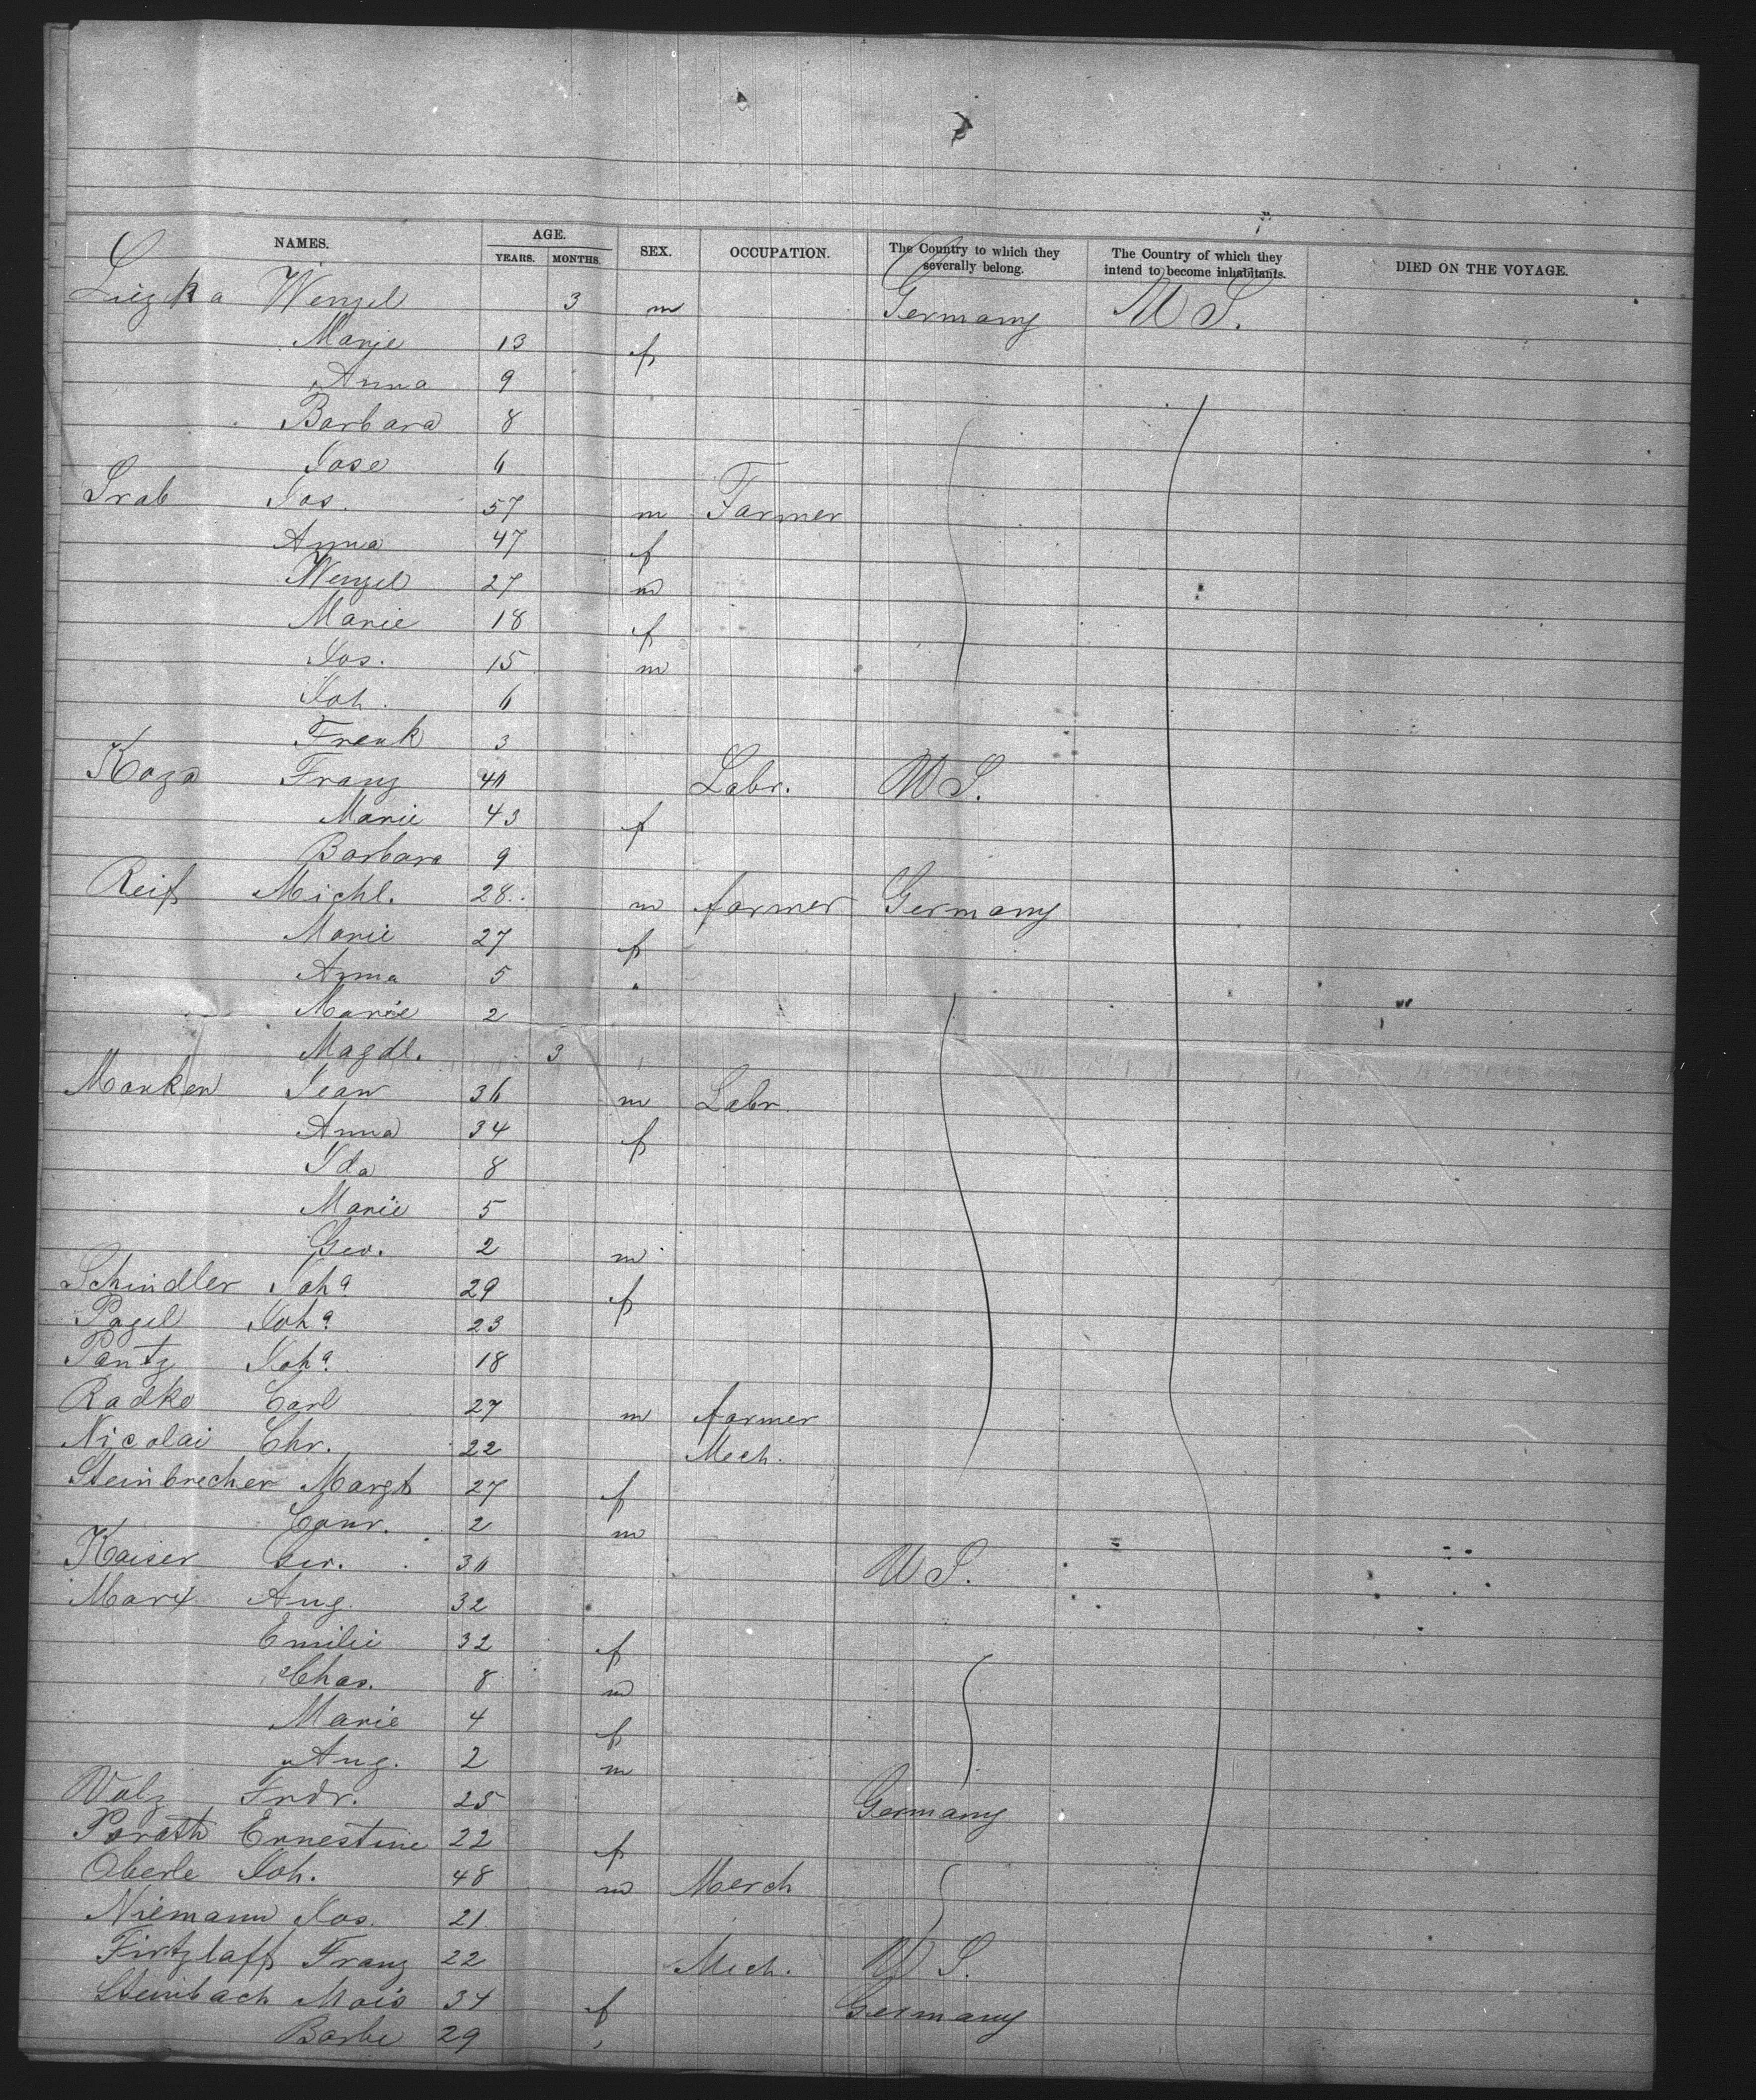 NAMES. AGE. SEX. OCCUPATION. The Country to which they severally belong. The Country of which they intend to become inhabitants. DIED ON THE VOYAGE.
YEARS. MONTHS.
Wenzel 3 m Germany U S.
Marie 13 f
Anna 9
Barbara 8
6
Jos. 57 m Farmer
Anna 47 f
Wenzel 27 m
Marie 18 f
Jos. 15 m
Joh. 6
Frank 3
Koza Franz 46 Labr. U S.
Marie 43 f
Barbara 9
Reif Michl. 28 m farmer Germany
Marie 27 f
Anna 5
Marie 2
Magdl. 3
Jean 36 m Labr.
Anna 34 f
Ida 8
Marie 5
Geo. 2 m
Schindler Joha 29 f
Pagel Joha 23
Pantz Joha 18
Radke Carl 27 m farmer
Nicolai Chr. 22 Mech.
Steinbrecher Margt 27 f
Conr. 2 m
Kaiser 36 U S.
Marx Aug. 32
Emilie 32 f
Chas. 8 m
Marie 4 f
Aug. 2 m
Volz Frdr. 25 Germany
Porath Ernestine 22 f
Oberle Joh. 48 m Merch
Niemann Jos. 21
Firtzlaff Franz 22 Mech. U S.
Steinbach 34 f Germany
Barbe 29